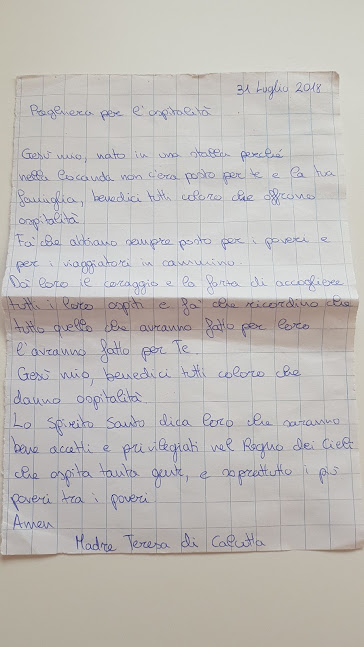 31 Luglio 2018
Preghiera per l'ospitalità
Gesù mio, nato in una stalla perché
nella locanda non c'era posto per te e la tua
famiglia, benedici tutti coloro che offrono
ospitalità
Fa' che abbiano sempre posto per i poveri e
per i viaggiatori in cammino.
Dai loro il coraggio e la forza di accogliere
tutti i loro ospiti e fa' che ricordino che
tutto quello che avranno fatto per loro
l'avranno fatto per Te.
Gesù mio, benedici tutti coloro che
danno ospitalità.
Lo Spirito Santo dica loro che saranno
bene accetti e privilegiati nel Regno dei Cieli
che ospita tanta gente, e soprattutto i più
poveri tra i poveri
Amen
Madre Teresa di Calcutta